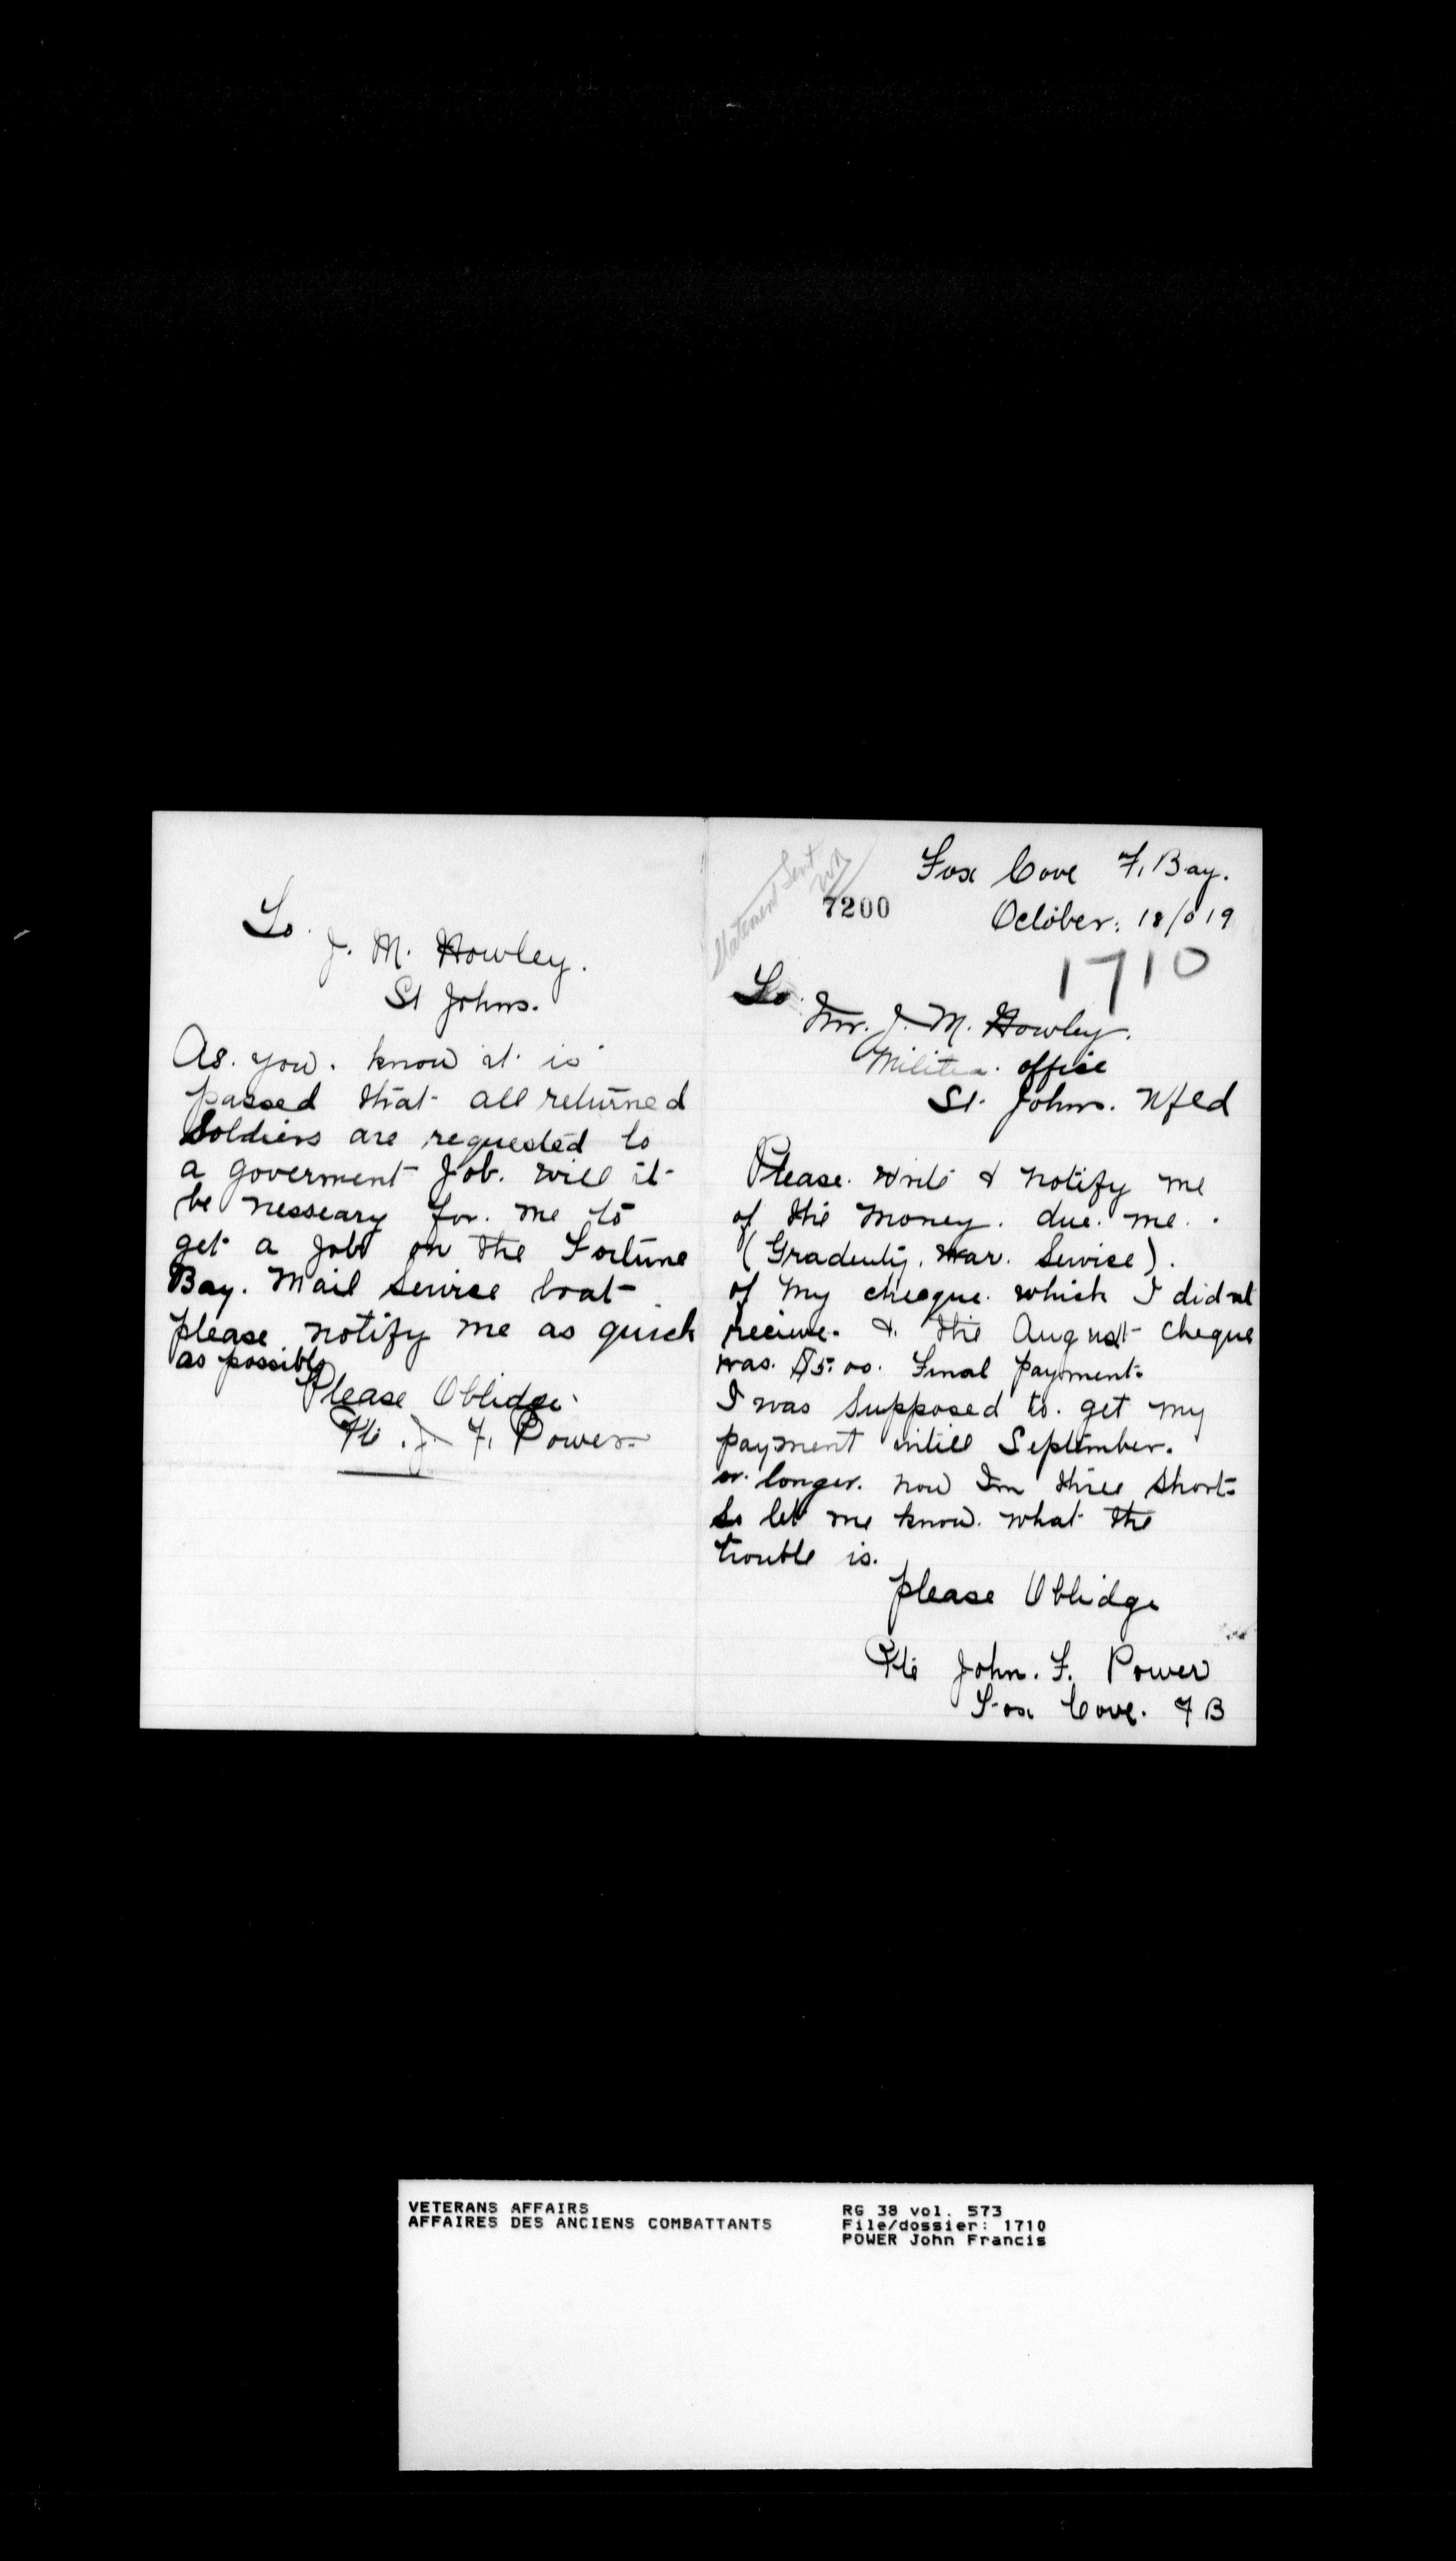 Fox Cove F. Bay.
October. 18/019
Statement Sent
7200
1710
To.
Mr. J. M. Howley.
Militia. office
St. Johns. Nfld
Please. write & notify me
of the money. due. me.
(Gradeuty. War. Service).
of my cheaque. which I didnt
recieve. & the August cheque
was. $5.00. Final payment.
I was Supposed to. get my
payment intill September.
or. longer. now Im three short.
So let me know. what the
trouble is.
please Oblidge
Pte John. F. Power
Fox Cove. F B
To.
J. M. Howley.
St Johns.
As. you. know it. is
passed that all returned
Soldiers are requested to
a goverment Job. will it
be nesseary for. me to
get a Job on the Fortune
Bay. Mail Service boat
please notify me as quick
as possible
Please Oblidge
Pte. J. F. Power
VETERANS AFFAIRS
AFFAIRES DES ANCIENS COMBATTANTS
RG 38 vol. 573
File/dossier: 1710
POWER John Francis